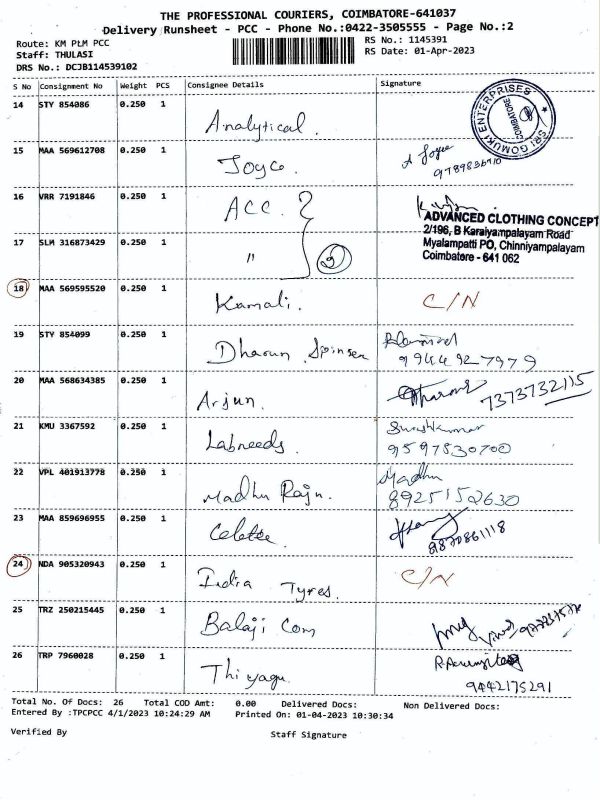 THE PROFESSIONAL COURIERS, COIMBATORE-641037
Delivery Runsheet - PCC - Phone No.:0422-3505555 - Page No.:2
Route: KM PLM PCC
RS No.: 1145391
Staff: THULASI
RS Date: 01-Apr-2023
DRS No.: DCJB114539102
S No Consignment No Weight PCS Consignee Details Signature
14 STY 854086 0.250 1 Analytical.
SRI GOMUKI ENTERPRISES
COIMBATORE
15 MAA 569612708 0.250 1 Joyce.
16 VRR 7191846 0.250 1 ACC.
ADVANCED CLOTHING CONCEPT
2/196, B Karaiyampalayam Road
Myalampatti PO, Chinniyampalayam
Coimbatore - 641 062
17 SLM 316873429 0.250 1 "
18 MAA 569595520 0.250 1 Kamali. C/N
19 STY 854099 0.250 1 Dharun Spinsen
9944927979
20 MAA 568634385 0.250 1 Arjun. 7373732115
21 KMU 3367592 0.250 1 Labneeds. Sureshkumar
9597530700
22 VPL 401913778 0.250 1 Madhu Raju. Madhu
8925152630
23 MAA 859696955 0.250 1 Celette.
24 NDA 905320943 0.250 1 India Tyres. C/N
25 TRZ 250215445 0.250 1 Balaji Com
26 TRP 7960028 0.250 1 Thiyagu.
9442175291
Total No. Of Docs: 26 Total COD Amt: 0.00 Delivered Docs: Non Delivered Docs:
Entered By :TPCPCC 4/1/2023 10:24:29 AM Printed On: 01-04-2023 10:30:34
Verified By Staff Signature